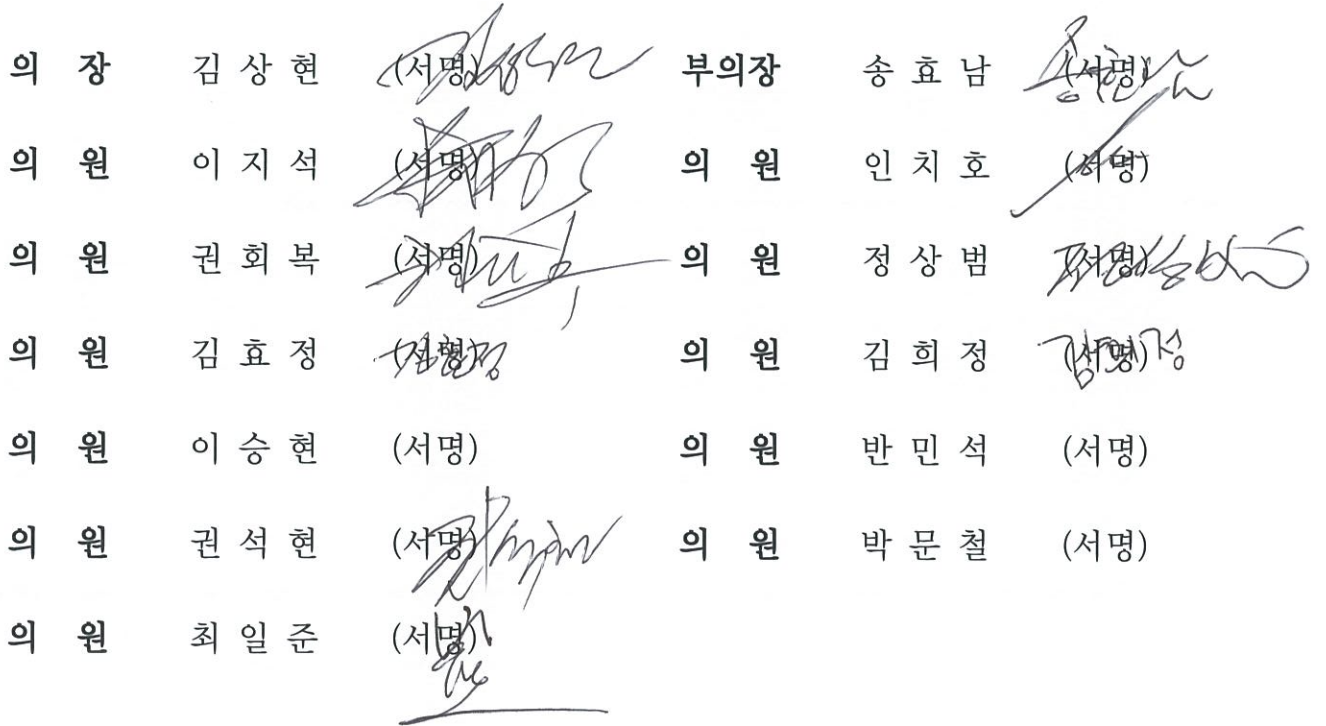 의 장 김 상 현 (서명) 부의장 송 효 남 (서명)
의 원 이 지 석 (서명) 의 원 인 치 호 (서명)
의 원 권 회 복 (서명) 의 원 정 상 범 (서명)
의 원 김 효 정 (서명) 의 원 김 희 정 (서명)
의 원 이 승 현 (서명) 의 원 반 민 석 (서명)
의 원 권 석 현 (서명) 의 원 박 문 철 (서명)
의 원 최 일 준 (서명)